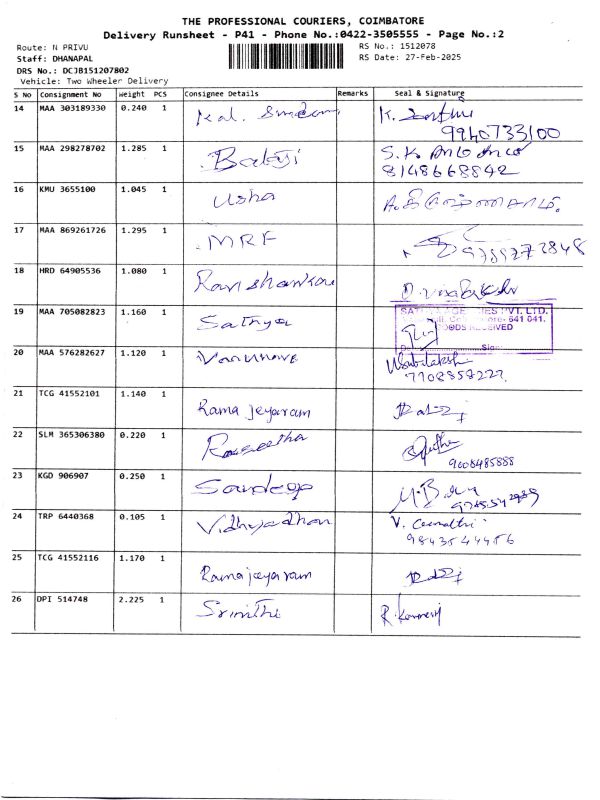 THE PROFESSIONAL COURIERS, COIMBATORE
Delivery Runsheet - P41 - Phone No.:0422-3505555 - Page No.:2
Route: N PRIVU
RS No.: 1512078
Staff: DHANAPAL
RS Date: 27-Feb-2025
DRS No.: DCJB151207802
Vehicle: Two Wheeler Delivery
S No Consignment No Weight PCS Consignee Details Remarks Seal & Signature
14 MAA 303189330 0.240 1 K.
9940733100
15 MAA 298278702 1.285 1 Balaji S.K
8148668842
16 KMU 3655100 1.045 1 Usha
17 MAA 869261726 1.295 1 MRF
18 HRD 64905536 1.080 1 Ravishankar
19 MAA 705082823 1.160 1 Sathya
PVT. LTD.
641 041.
GOODS RECEIVED
20 MAA 576282627 1.120 1
7708857222
21 TCG 41552101 1.140 1 Rama jeyaram
22 SLM 365306380 0.220 1
9006485888
23 KGD 906907 0.250 1 Sandeep
24 TRP 6440368 0.105 1 Vidhyadhan V.
9843544456
25 TCG 41552116 1.170 1 Rama jeyaram
26 DPI 514748 2.225 1 Srinithi R.